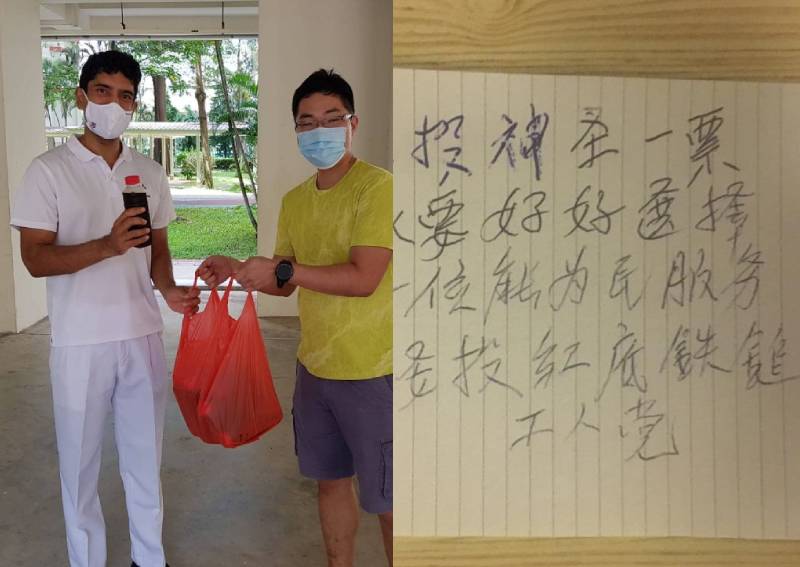 投神圣一票
要好好选择
一位能为民服务
投红底鉄鎚
工人党